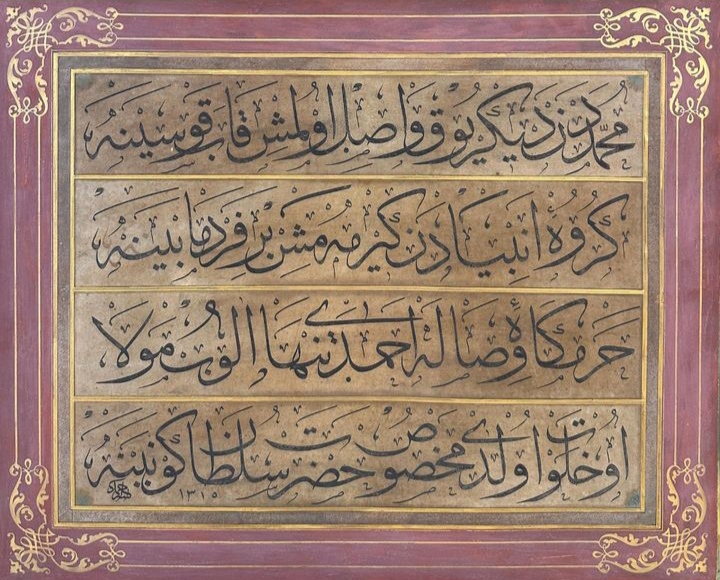 محمددن دیکر یوق واصل اولمش قاب قوسینه
کروه انبیادن کیرمه‌مش بر فرد مابینه
حرمکاه وصاله احمدی تنها الوب مولا
او خلوت اولدی مخصوص حضرت سلطان کونینه
١٣١٥